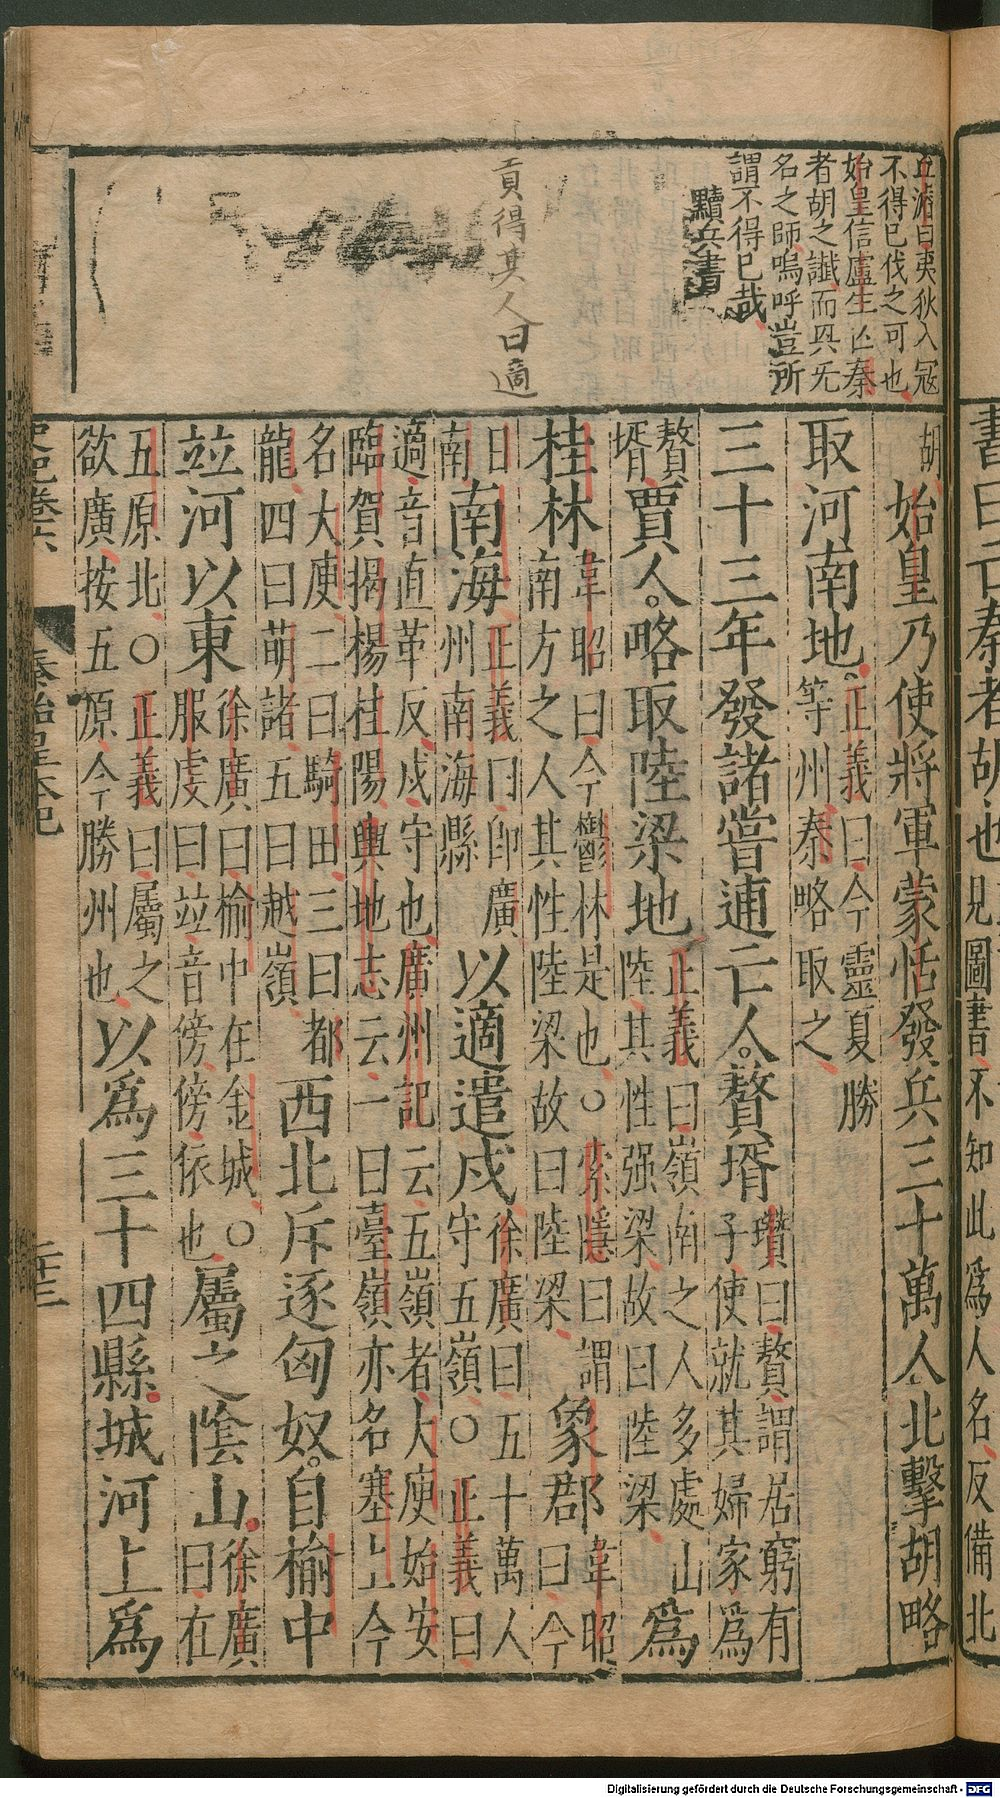 丘濬曰夷狄入冦
不得已伐之可也
始皇信盧生亡秦
者胡之讖而興旡
名之師嗚呼豈所
謂不得已哉
黷兵書
貢得其人曰適
書曰亡秦者胡也見圖書不知此爲人名反備北
胡始皇乃使將軍蒙恬發兵三十萬人北擊胡略
取河南地正義曰今靈夏勝
等州秦略取之
三十三年發諸嘗逋亡人贅壻瓚曰贅謂居窮有
子使就其婦家爲
贅
壻賈人略取陸梁地正義曰嶺南之人多處山
陸其性强梁故曰陸梁爲
桂林韋昭曰今鬱林是也○索隱曰謂
南方之人其性陸梁故曰陸梁象郡韋昭
曰今
日
南南海正義曰卽廣
州南海縣以適遣戍徐廣曰五十萬人
守五嶺○正義曰
適音直革反戍守也廣州記云五嶺者大庾始安
臨賀揭楊桂陽輿地志云一曰臺嶺亦名塞上今
名大庾二曰騎田三曰都
龍四曰萌諸五曰越嶺西北斥逐匈奴自榆中
並河以東徐廣曰榆中在金城○
服虔曰並音傍傍依也屬之陰山徐廣
曰在
五原北○正義曰屬之
欲廣按五原今勝州也以爲三十四縣城河上爲
史記卷六 秦始皇本紀
Digitalisierung gefördert durch die Deutsche Forschungsgemeinschaft - DFG